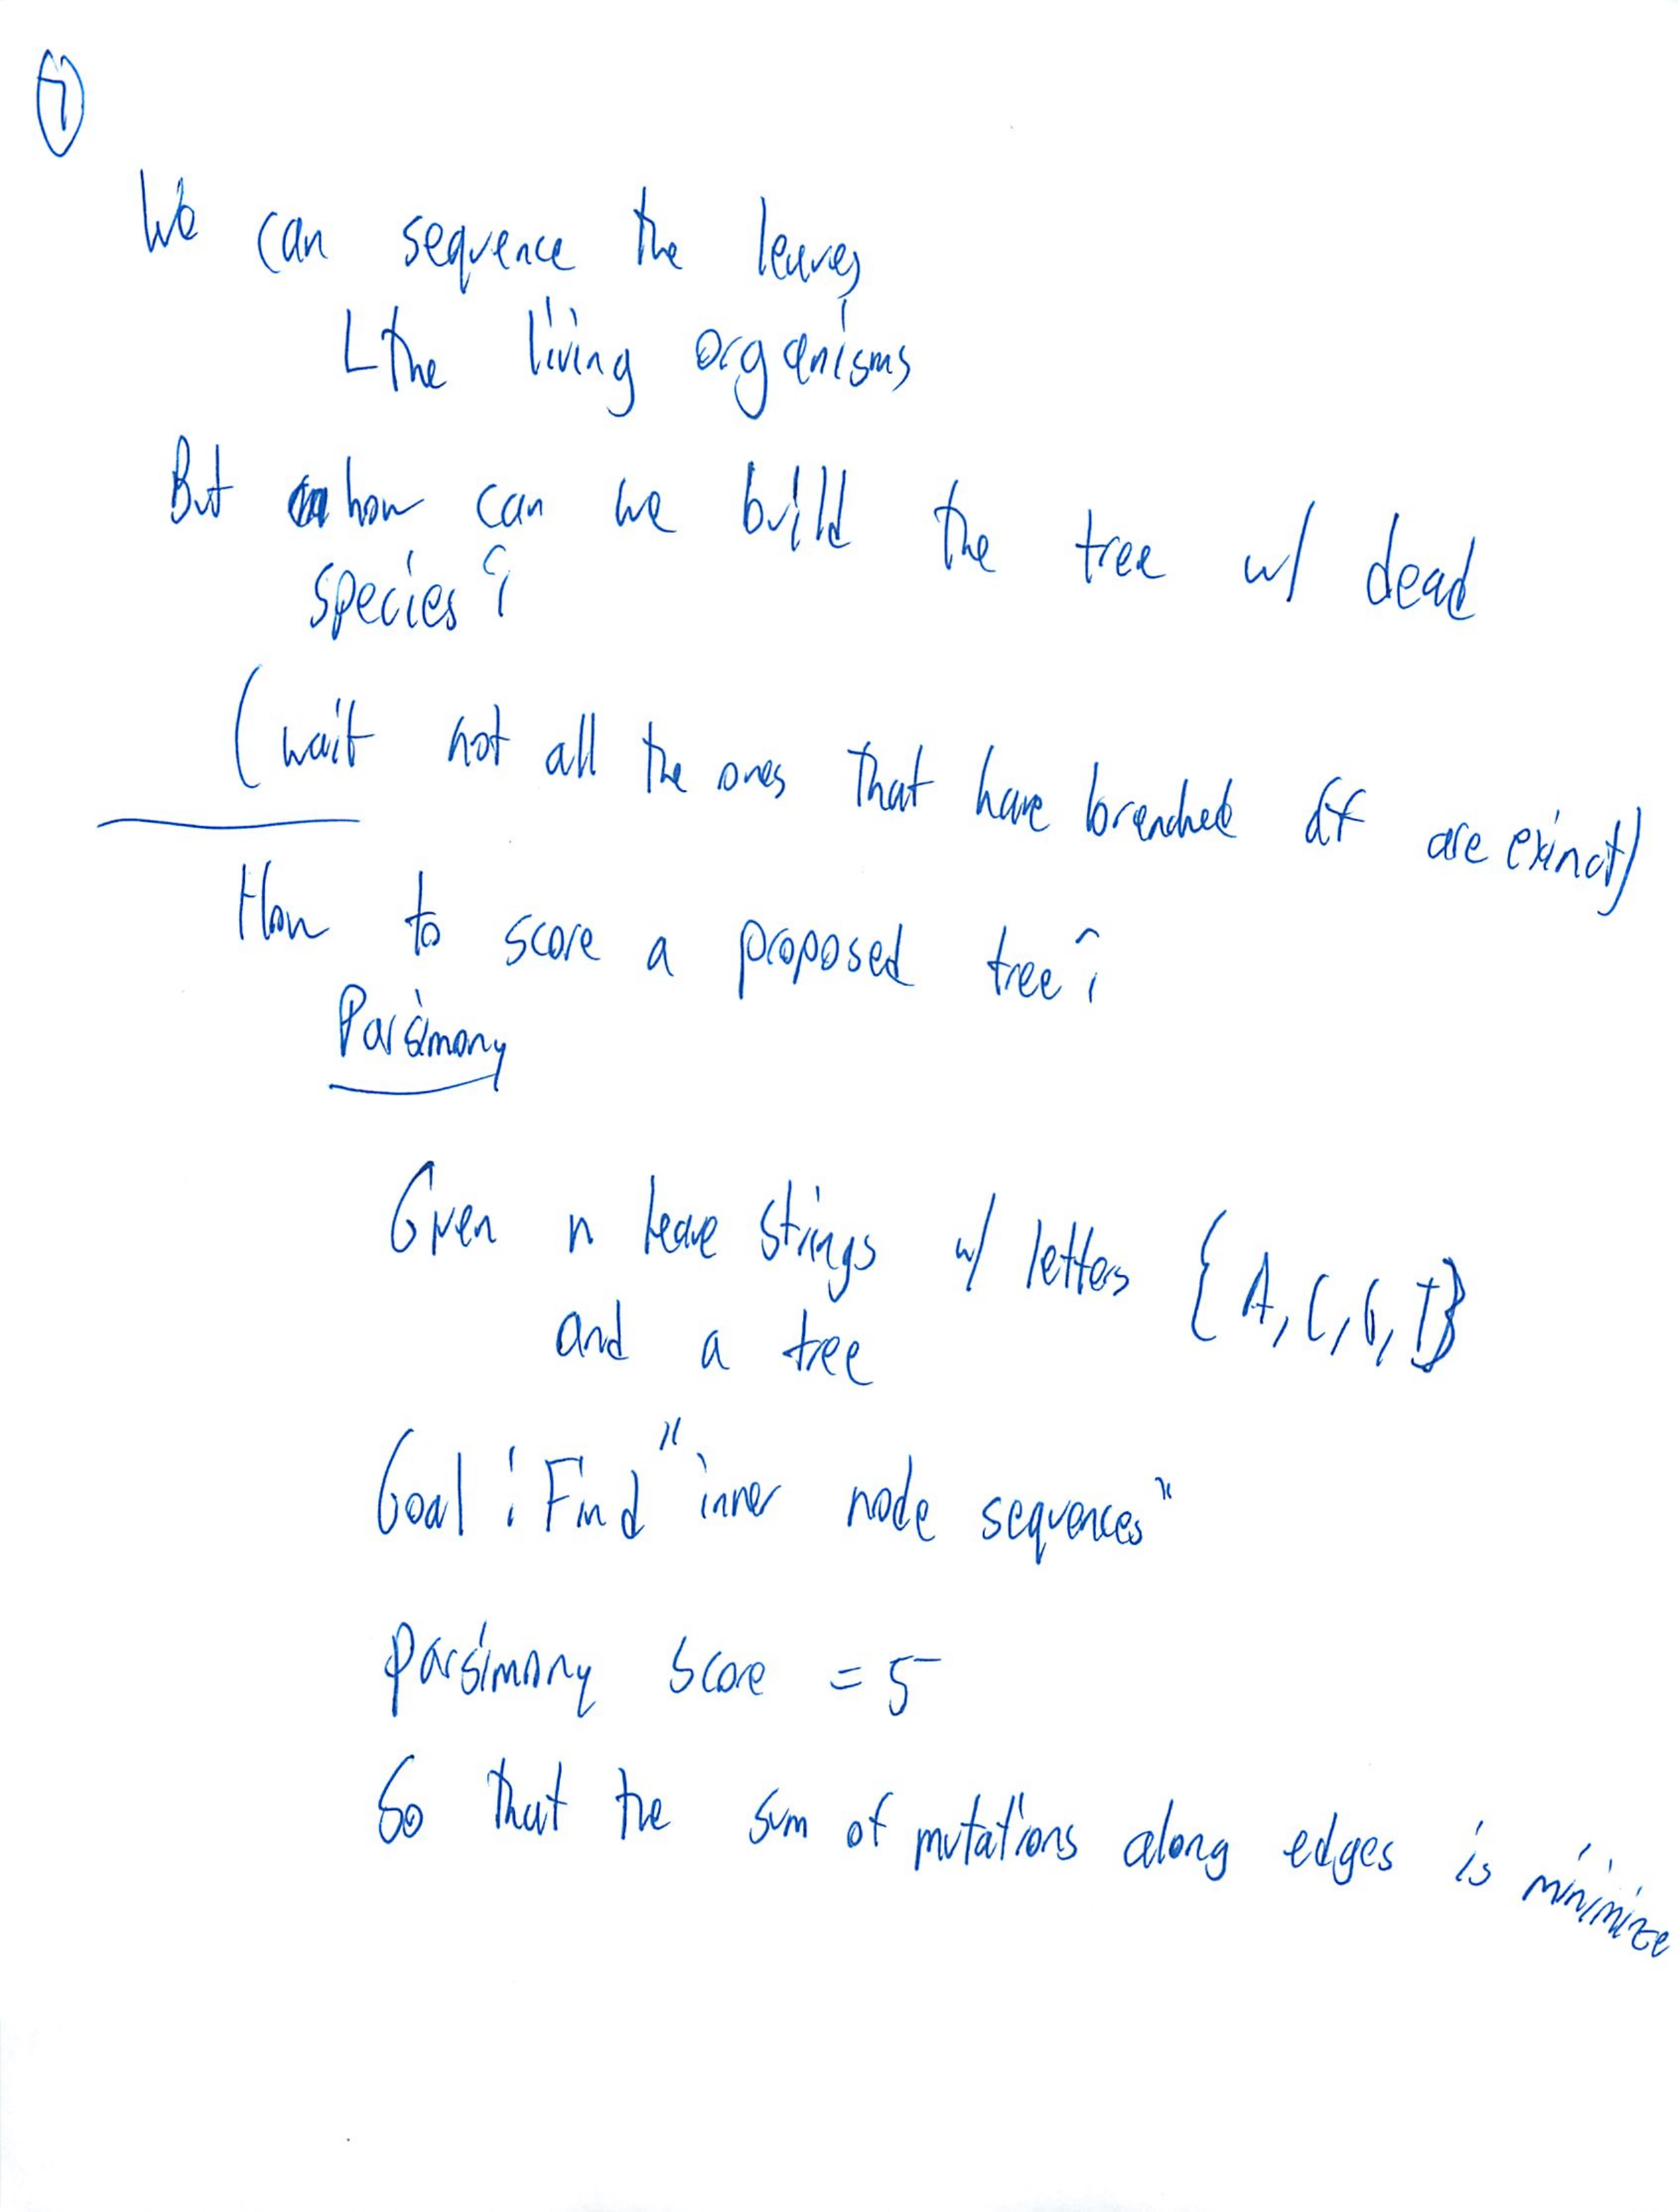 7
We can sequence the leaves
the living organisms
But how can we build the tree w/ dead
species?
(wait not all the ones that have branched off are exinct)
How to score a proposed tree?
Parsimony
Given n leave strings w/ letters {A, C, G, T}
and a tree
Goal: Find "inner node sequences"
parsimony score = 5
So that the sum of mutations along edges is minimize